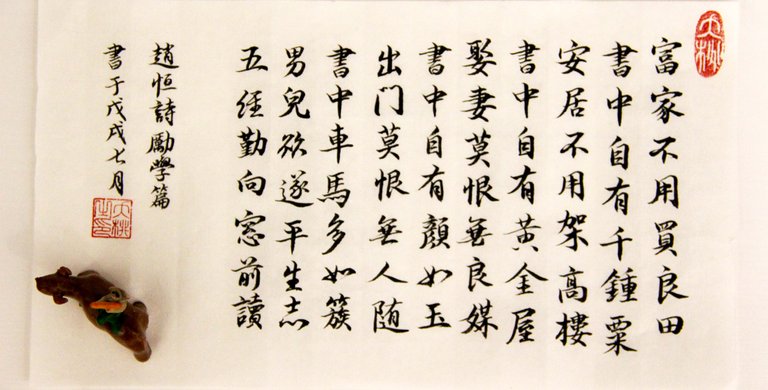 富家不用買良田
書中自有千鍾粟
安居不用架高樓
書中自有黃金屋
娶妻莫恨無良媒
書中自有顏如玉
出门莫恨無人随
書中車馬多如簇
男兒欲遂平生志
五經勤向窓前讀
趙恒詩勵學篇
書于戊戌七月